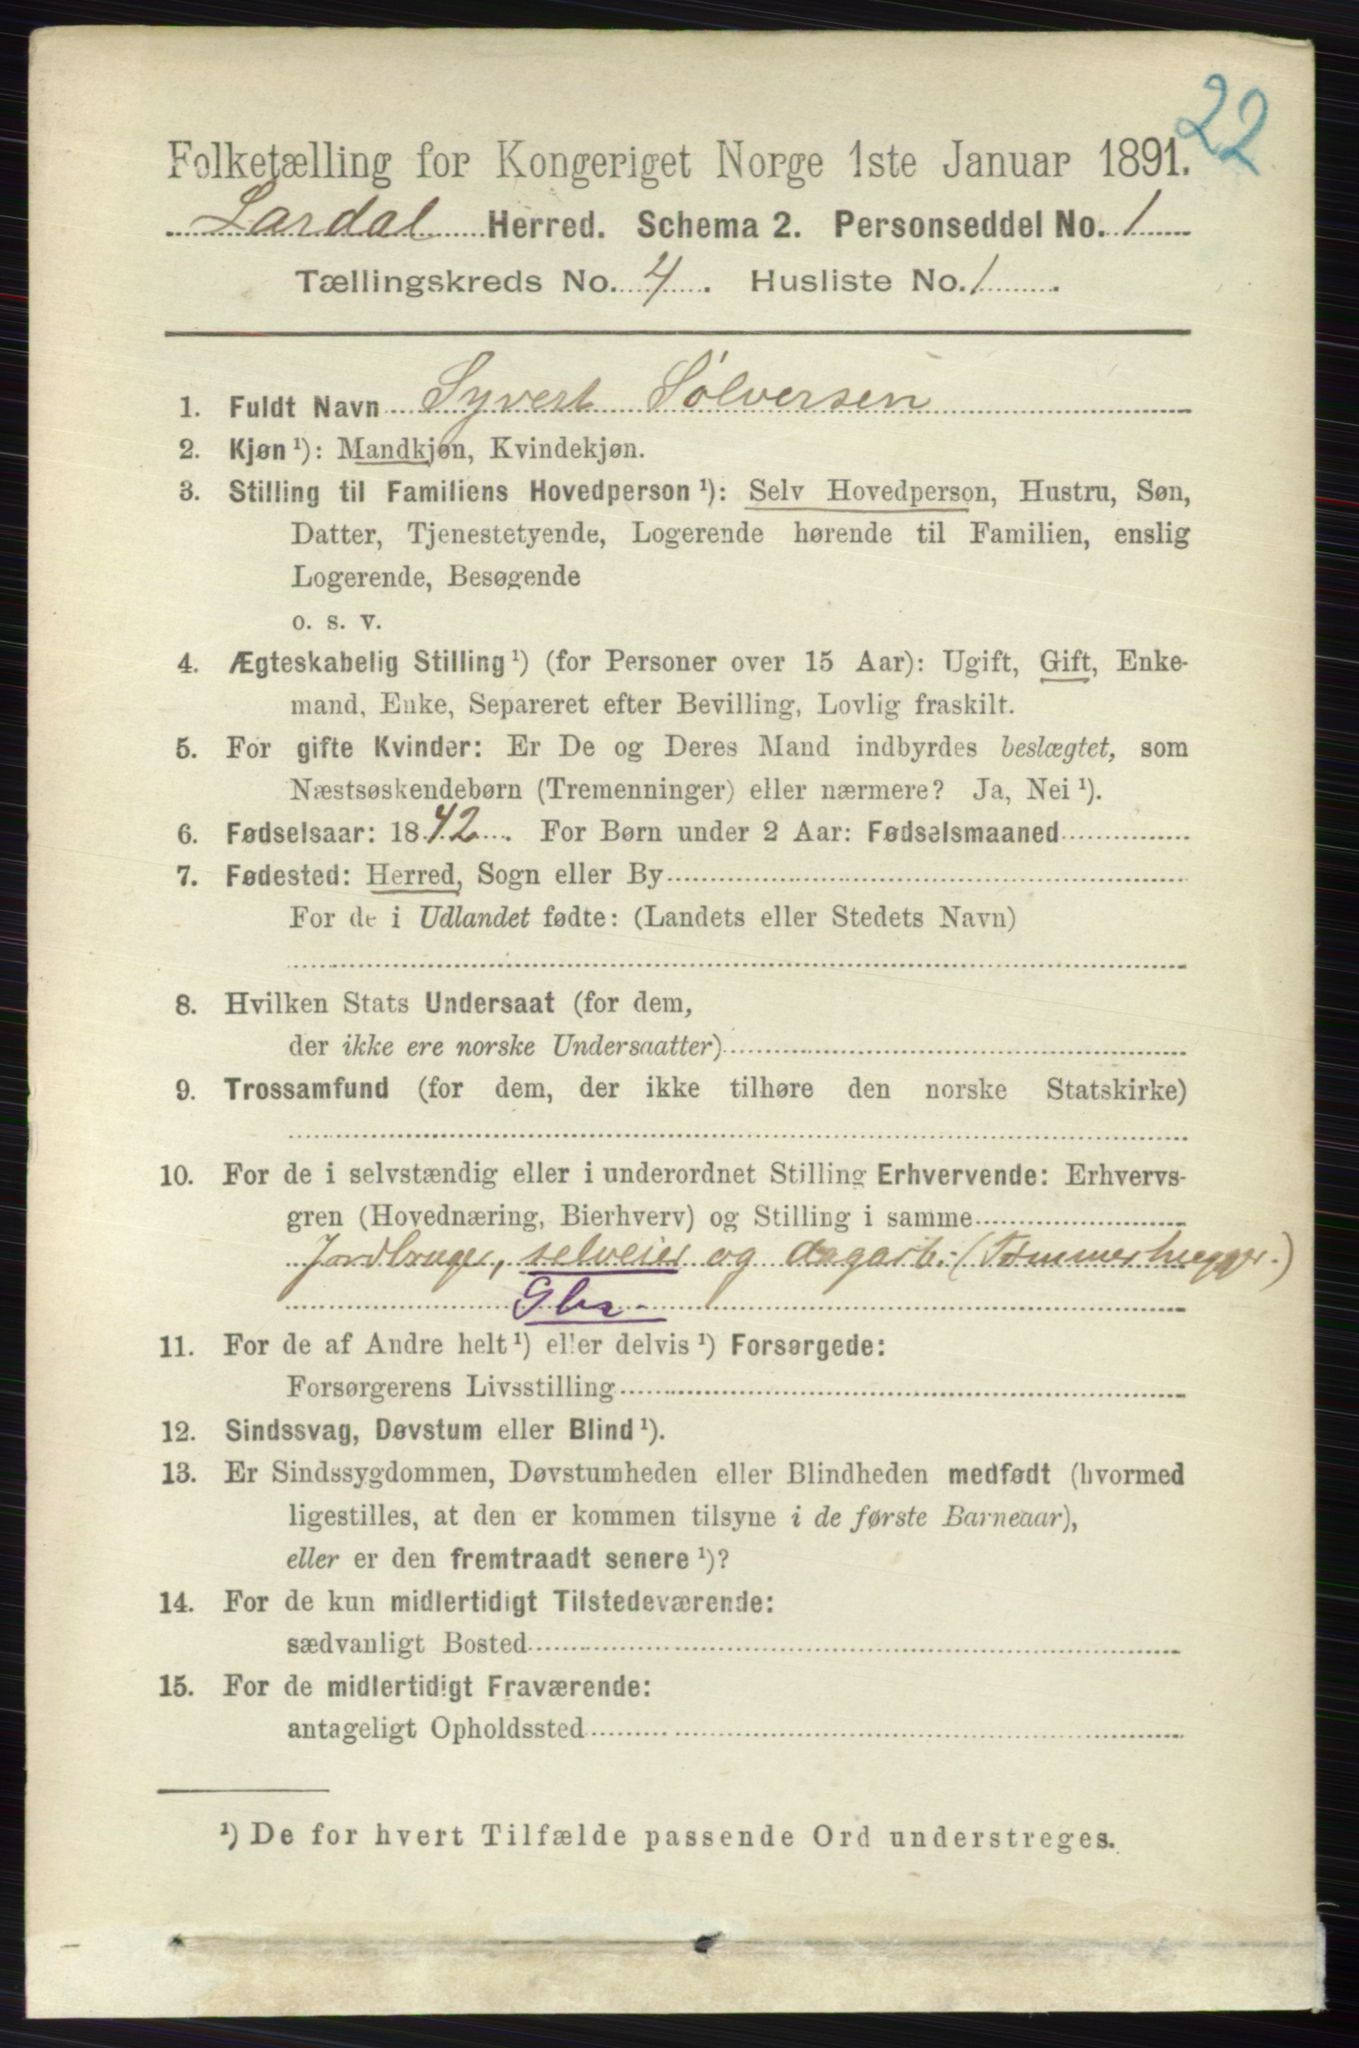 22
Folketælling for Kongeriget Norge 1ste Januar 1891.
Lardal Herred. Schema 2. Personseddel No. 1
Tællingskreds No. 4. Husliste No. 1.
1. Fuldt Navn Syvert Sølversen
2. Kjøn ¹): Mandkjøn, Kvindekjøn.
3. Stilling til Familiens Hovedperson ¹): Selv Hovedperson, Hustru, Søn,
Datter, Tjenestetyende, Logerende hørende til Familien, enslig
Logerende, Besøgende
o. s. v.
4. Ægteskabelig Stilling ¹) (for Personer over 15 Aar): Ugift, Gift, Enke-
mand, Enke, Separeret efter Bevilling, Lovlig fraskilt.
5. For gifte Kvinder: Er De og Deres Mand indbyrdes beslægtet, som
Næstsøskendebørn (Tremenninger) eller nærmere? Ja, Nei ¹).
6. Fødselsaar: 1842. For Børn under 2 Aar: Fødselsmaaned
7. Fødested: Herred, Sogn eller By
For de i Udlandet fødte: (Landets eller Stedets Navn)
8. Hvilken Stats Undersaat (for dem,
der ikke ere norske Undersaatter)
9. Trossamfund (for dem, der ikke tilhøre den norske Statskirke)
10. For de i selvstændig eller i underordnet Stilling Erhvervende: Erhvervs-
gren (Hovednæring, Bierhverv) og Stilling i samme
Jordbruger, selveier og dagarb. (Tømmerhugger.)
Gbr
11. For de af Andre helt ¹) eller delvis ¹) Forsørgede:
Forsørgerens Livsstilling
12. Sindssvag, Døvstum eller Blind ¹).
13. Er Sindssygdommen, Døvstumheden eller Blindheden medfødt (hvormed
ligestilles, at den er kommen tilsyne i de første Barneaar),
eller er den fremtraadt senere ¹)?
14. For de kun midlertidigt Tilstedeværende:
sædvanligt Bosted
15. For de midlertidigt Fraværende:
antageligt Opholdssted
¹) De for hvert Tilfælde passende Ord understreges.